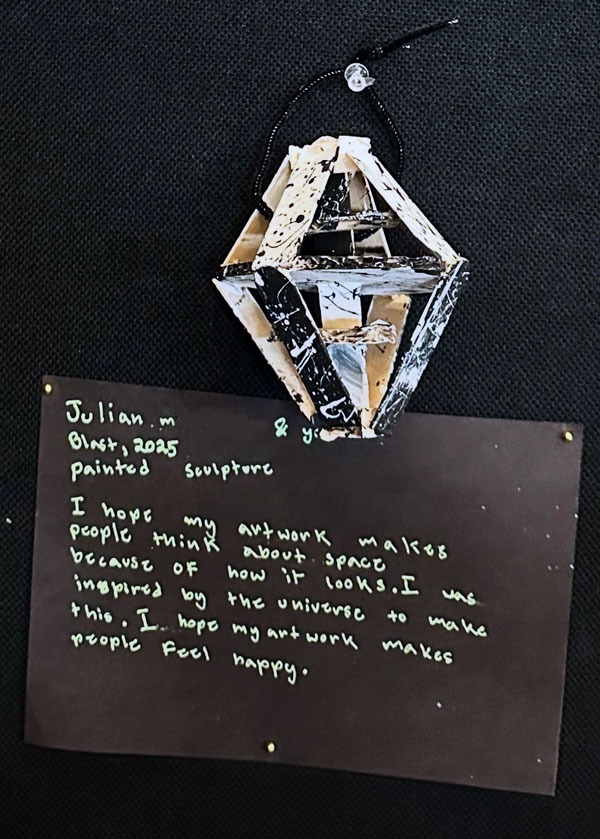 Julian.m
Blast, 2025
painted sculpture
I hope my artwork makes
people think about space
because of how it looks. I was
inspired by the universe to make
this. I hope my artwork makes
people feel happy.